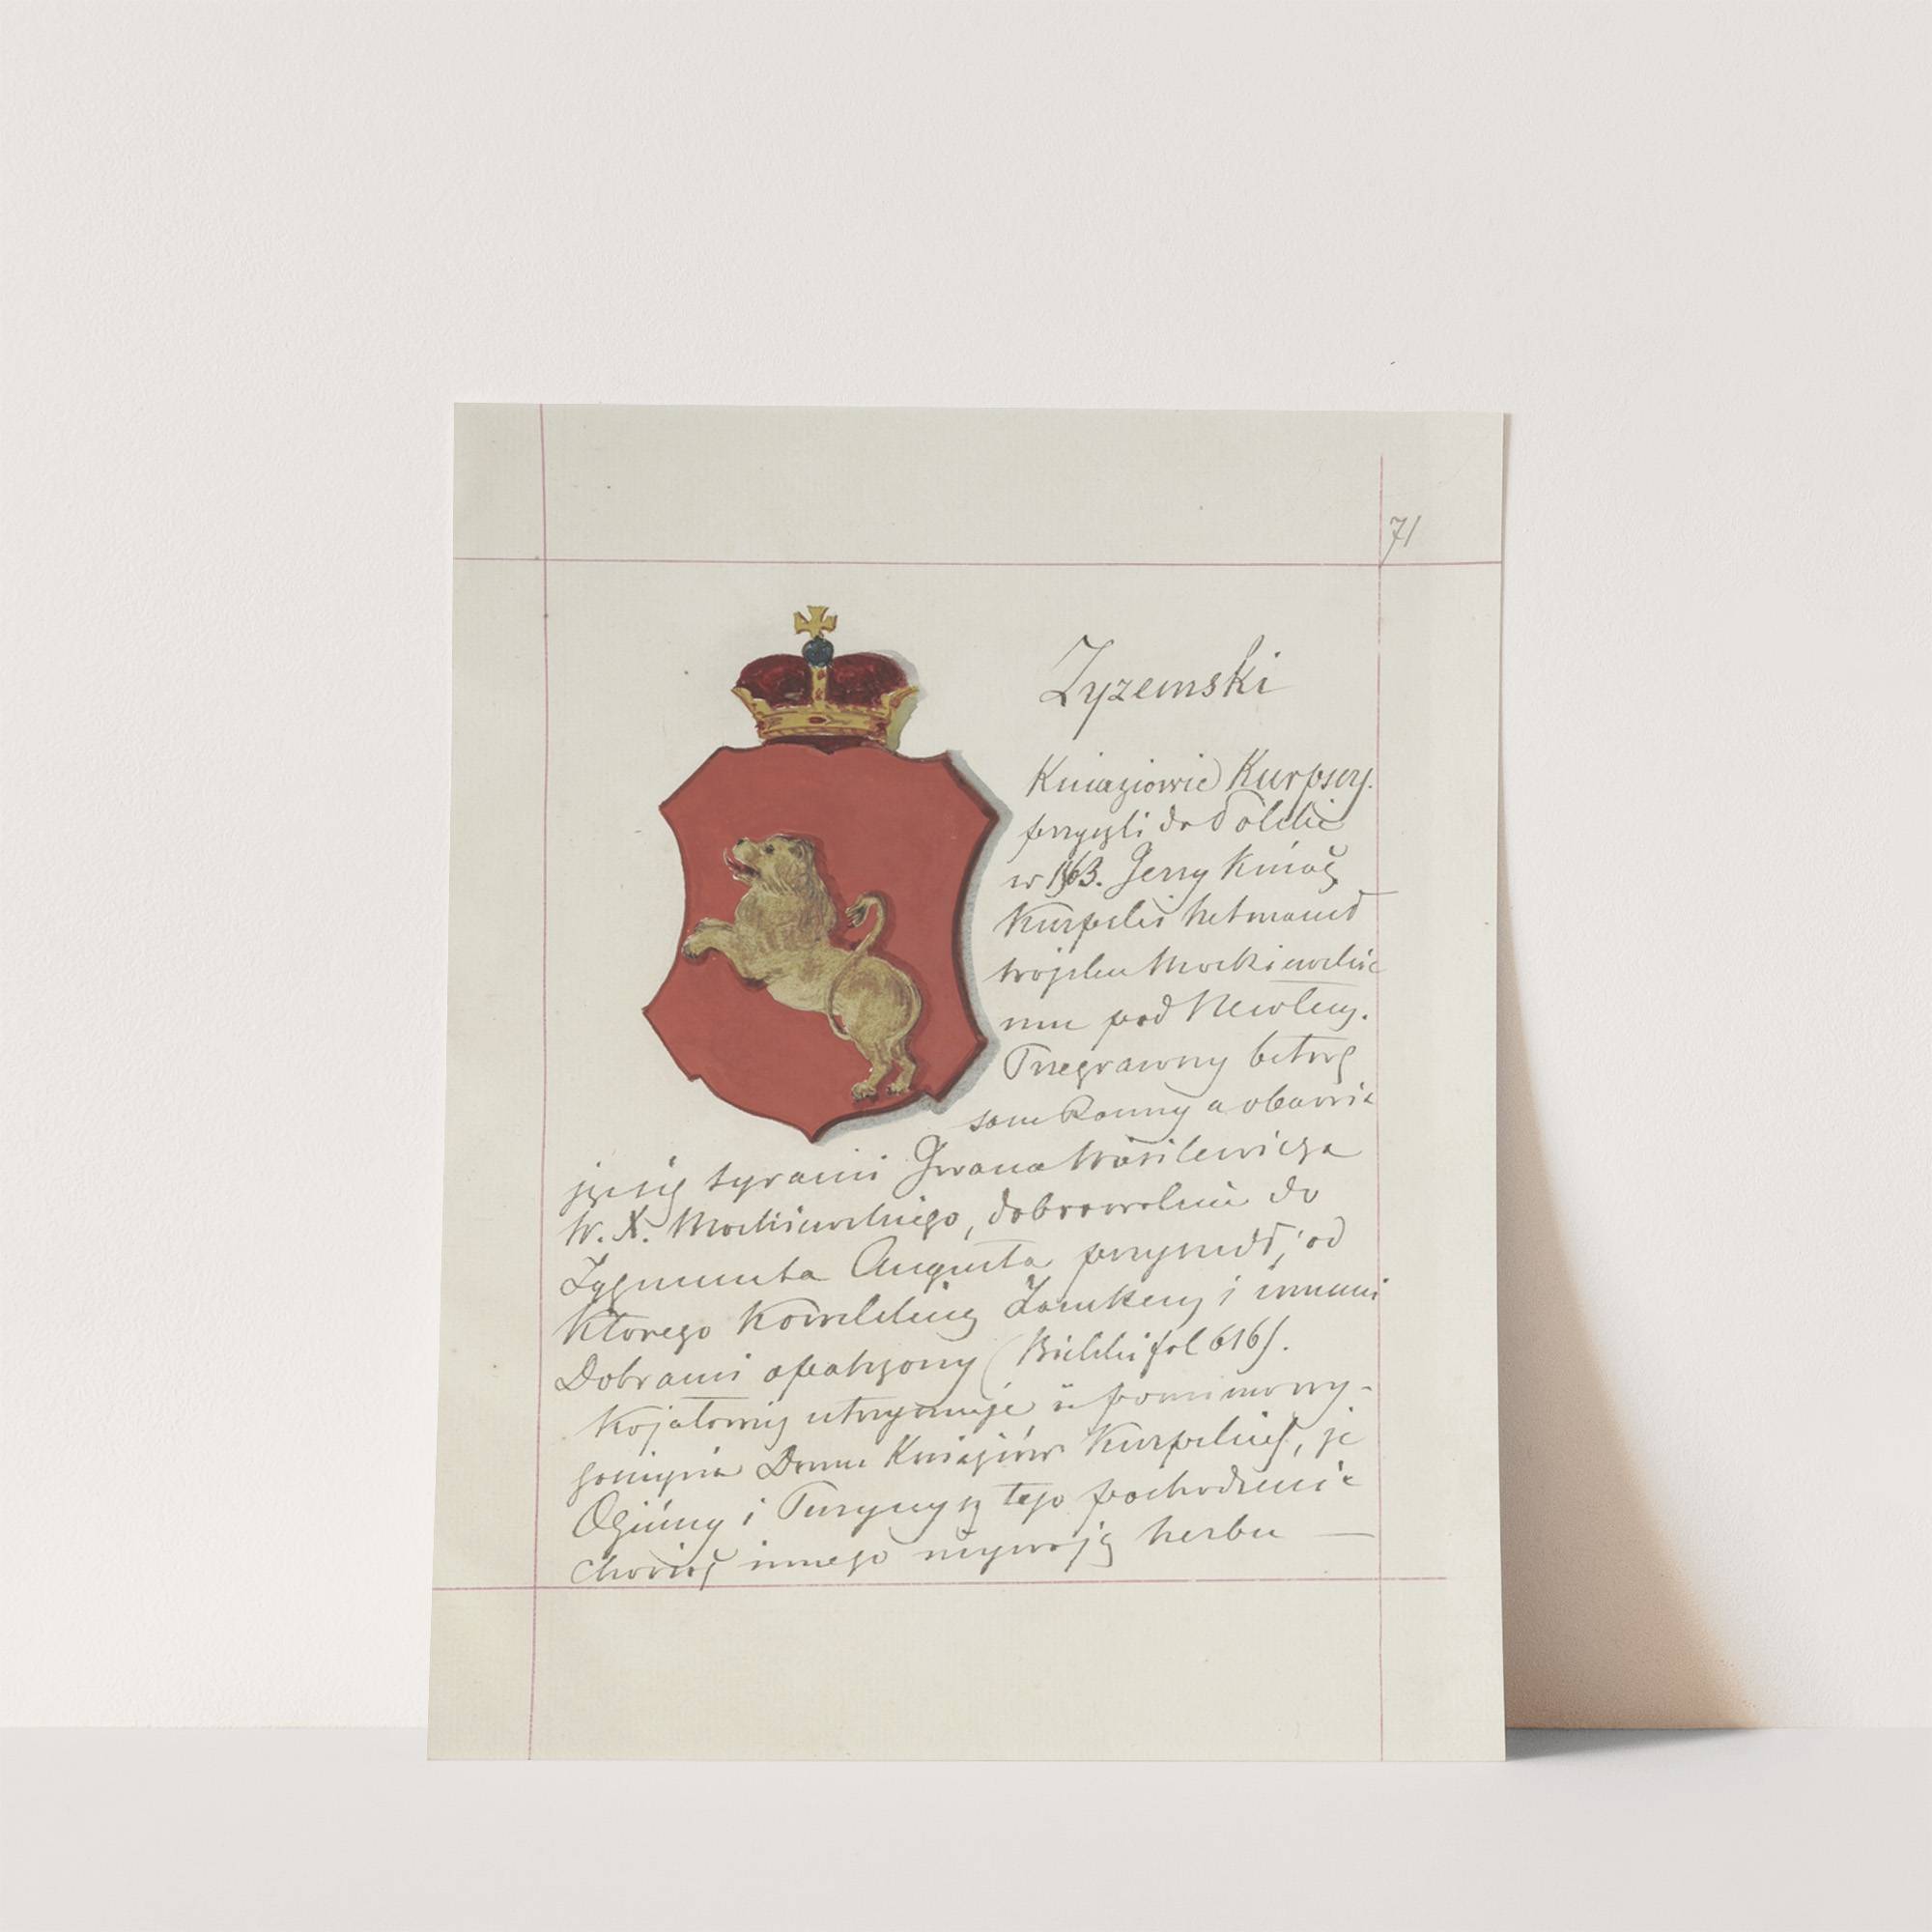 71
Zyzemski
Kniaziowie Kurpscy.
przyszli do Polski
w 1563. Jerzy Kniaź
Kurpski hetmanił
wojsku Moskiewskie
mu pod Newlem.
Przegrawszy bitwę
sam Ranny a obawia
jąc się tyranii Iwana Wasilewicza
W. X. Moskiewskiego, dobrowolnie do
Zygmunta Augusta przyszedł, od
Którego Kowelskim Zamkem i innemi
Dobrami opatrzony (Bielski fol 616).
Kojałowicz utrzymuje iż pomimo wy-
gaśnięcia Domu Kniaziów Kurpskich, że
i tego pochodzenia
Chociaż innego używają herbu —